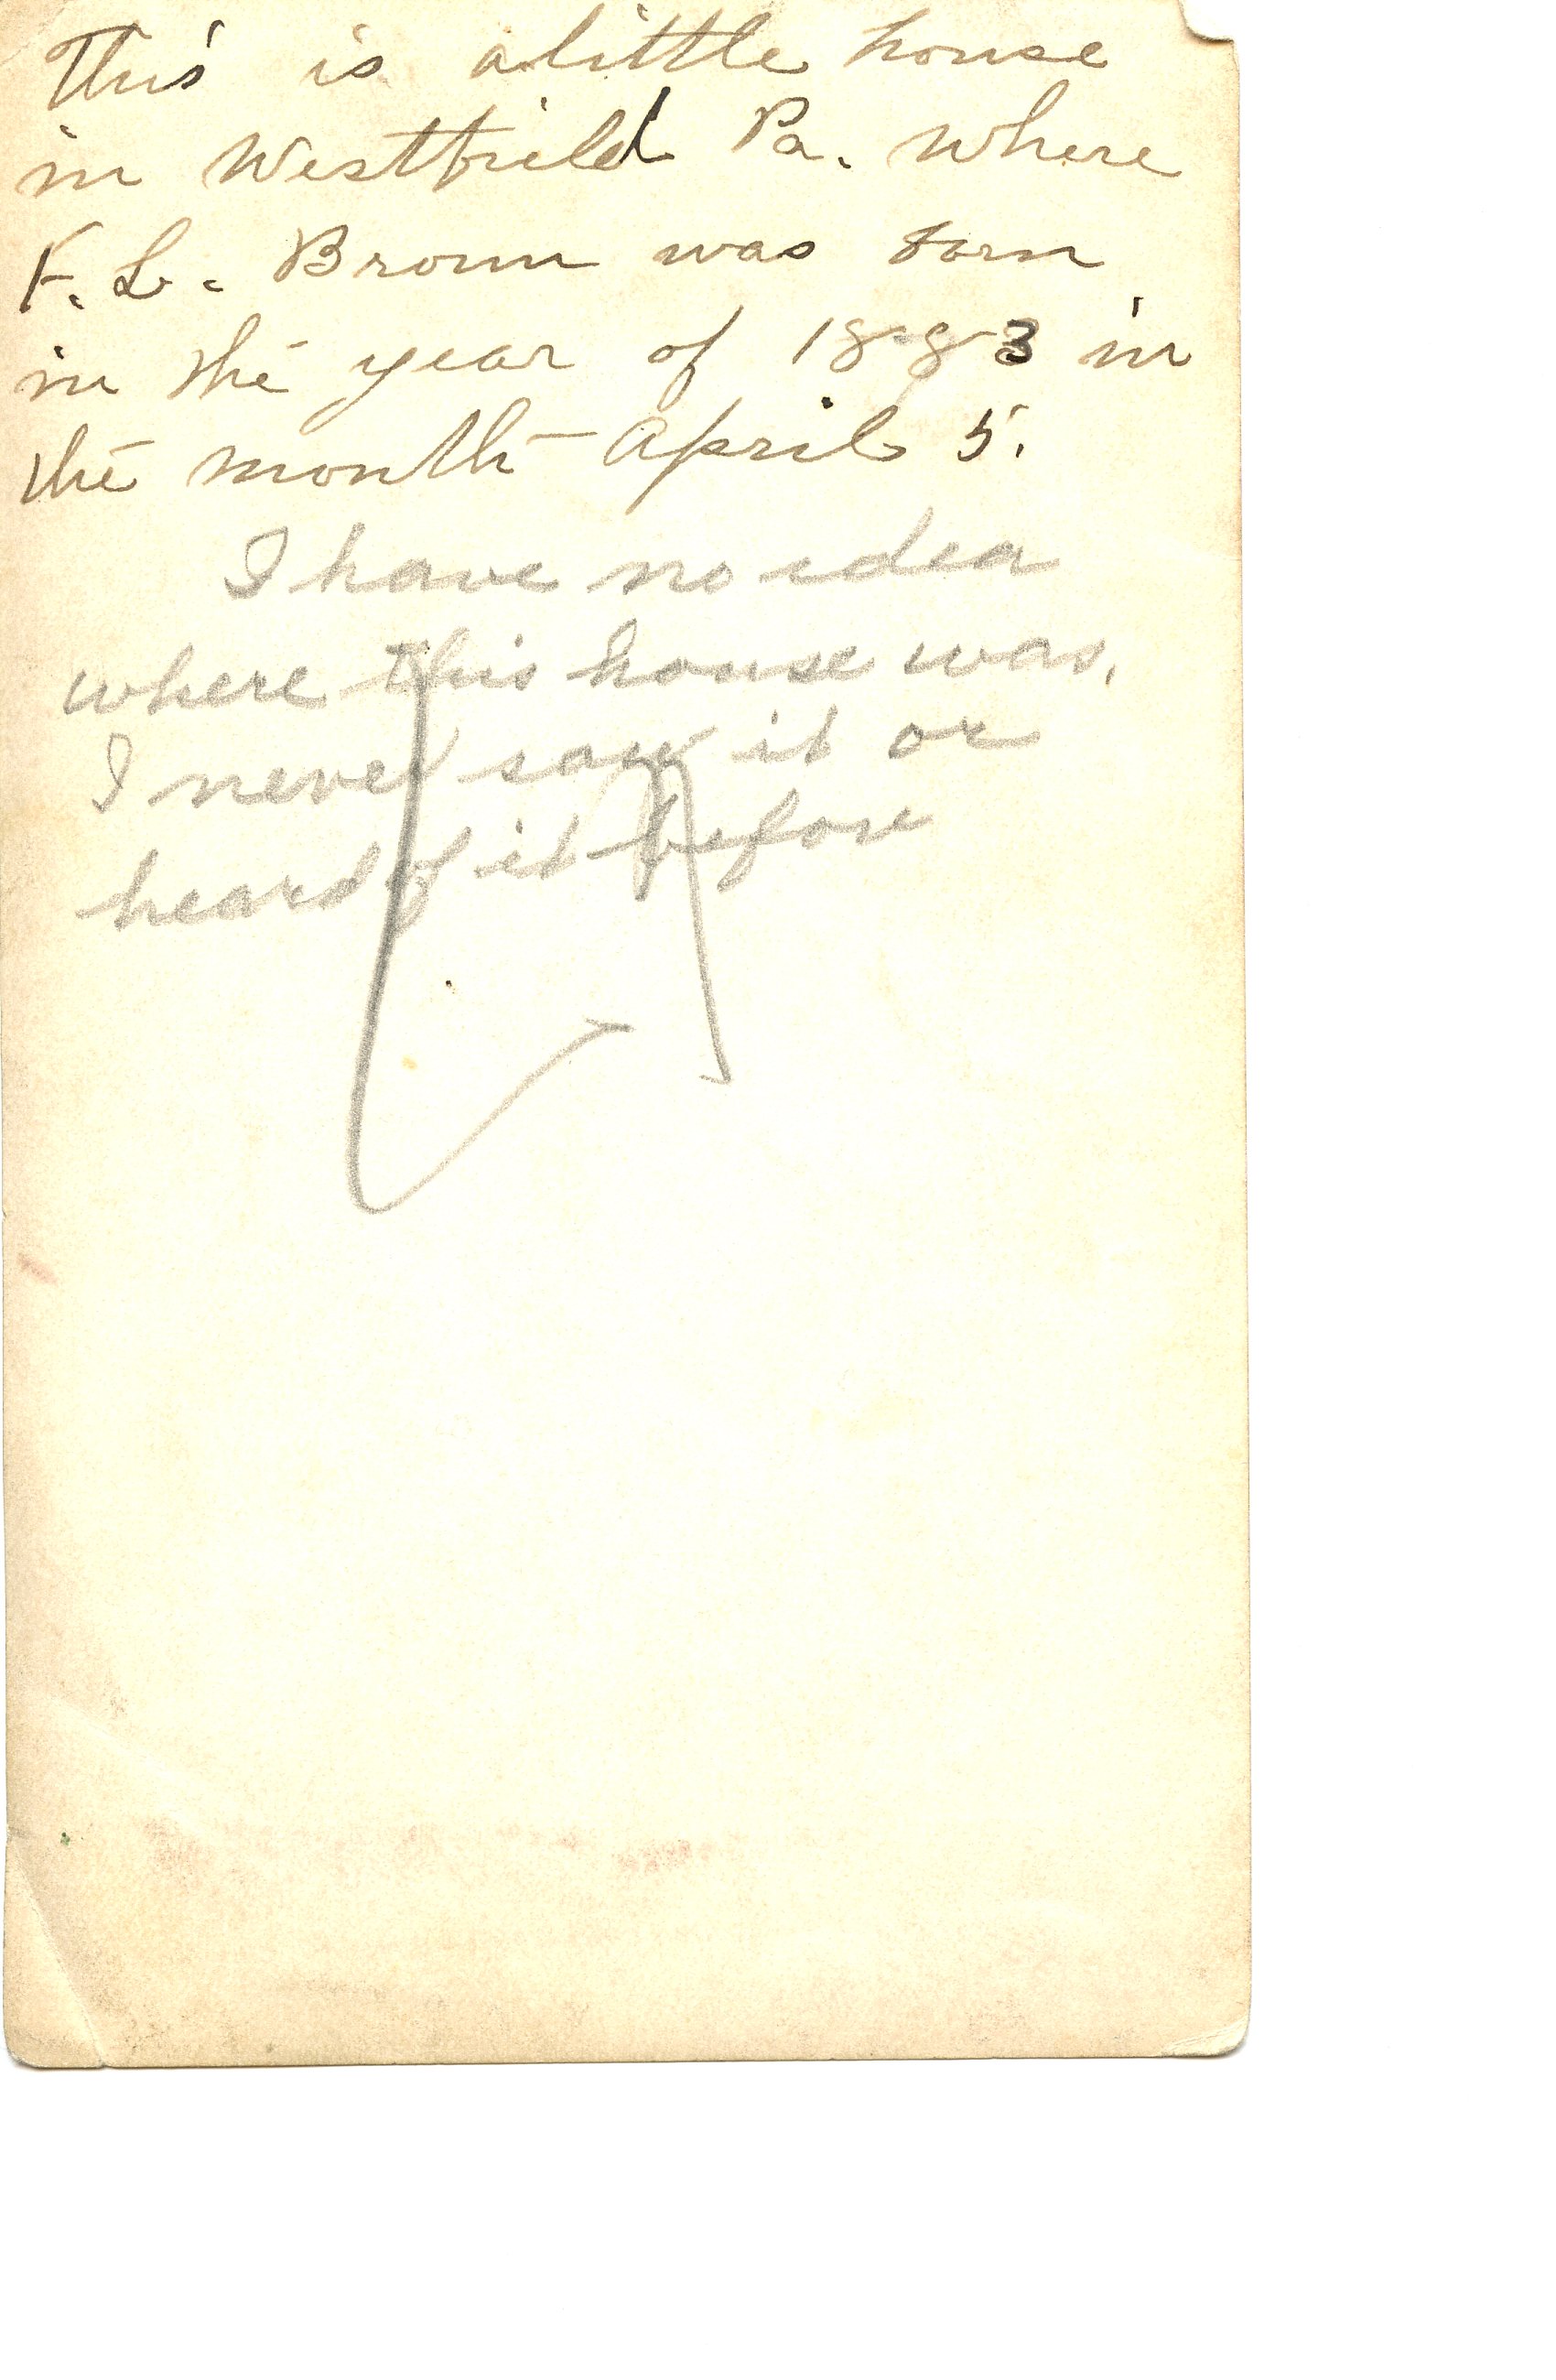 This is a little house
in Westfield Pa. where
F. L. Brown was born
in the year of 1883 in
the month April 5.
I have no idea
where this house was.
I never saw it or
heard of it before